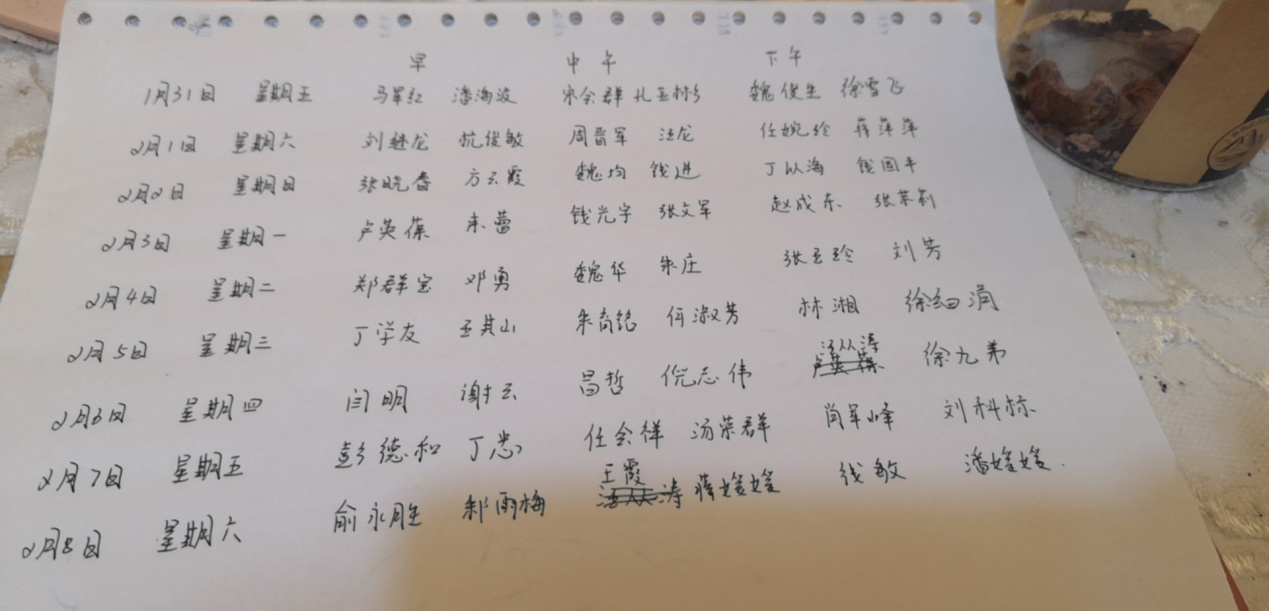 早 中午 下午
1月31日 星期五 马军红 潘海波 宋会群 孔亚彬 魏俊生 徐雪飞
2月1日 星期六 刘继龙 杭俊敏 周晋军 汪龙 任婉玲 蒋萍萍
2月2日 星期日 张晓春 方云霞 魏均 钱进 丁以海 钱国平
2月3日 星期一 卢英葆 朱蕾 钱光宇 张文军 赵成东 张荣莉
2月4日 星期二 郑群宝 邓勇 魏华 朱庄 张玉玲 刘芳
2月5日 星期三 丁学友 王其山 朱育铭 何淑芳 林湘 徐细涓
汪从涛
2月6日 星期四 闫明 谢云 昌哲 倪志伟 卢英葆 徐九弟
2月7日 星期五 彭德和 丁忠 任会祥 汤荣群 肖军峰 刘科标
王霞
2月8日 星期六 俞永胜 郝雨梅 汪从涛 蒋媛媛 钱敏 潘媛媛